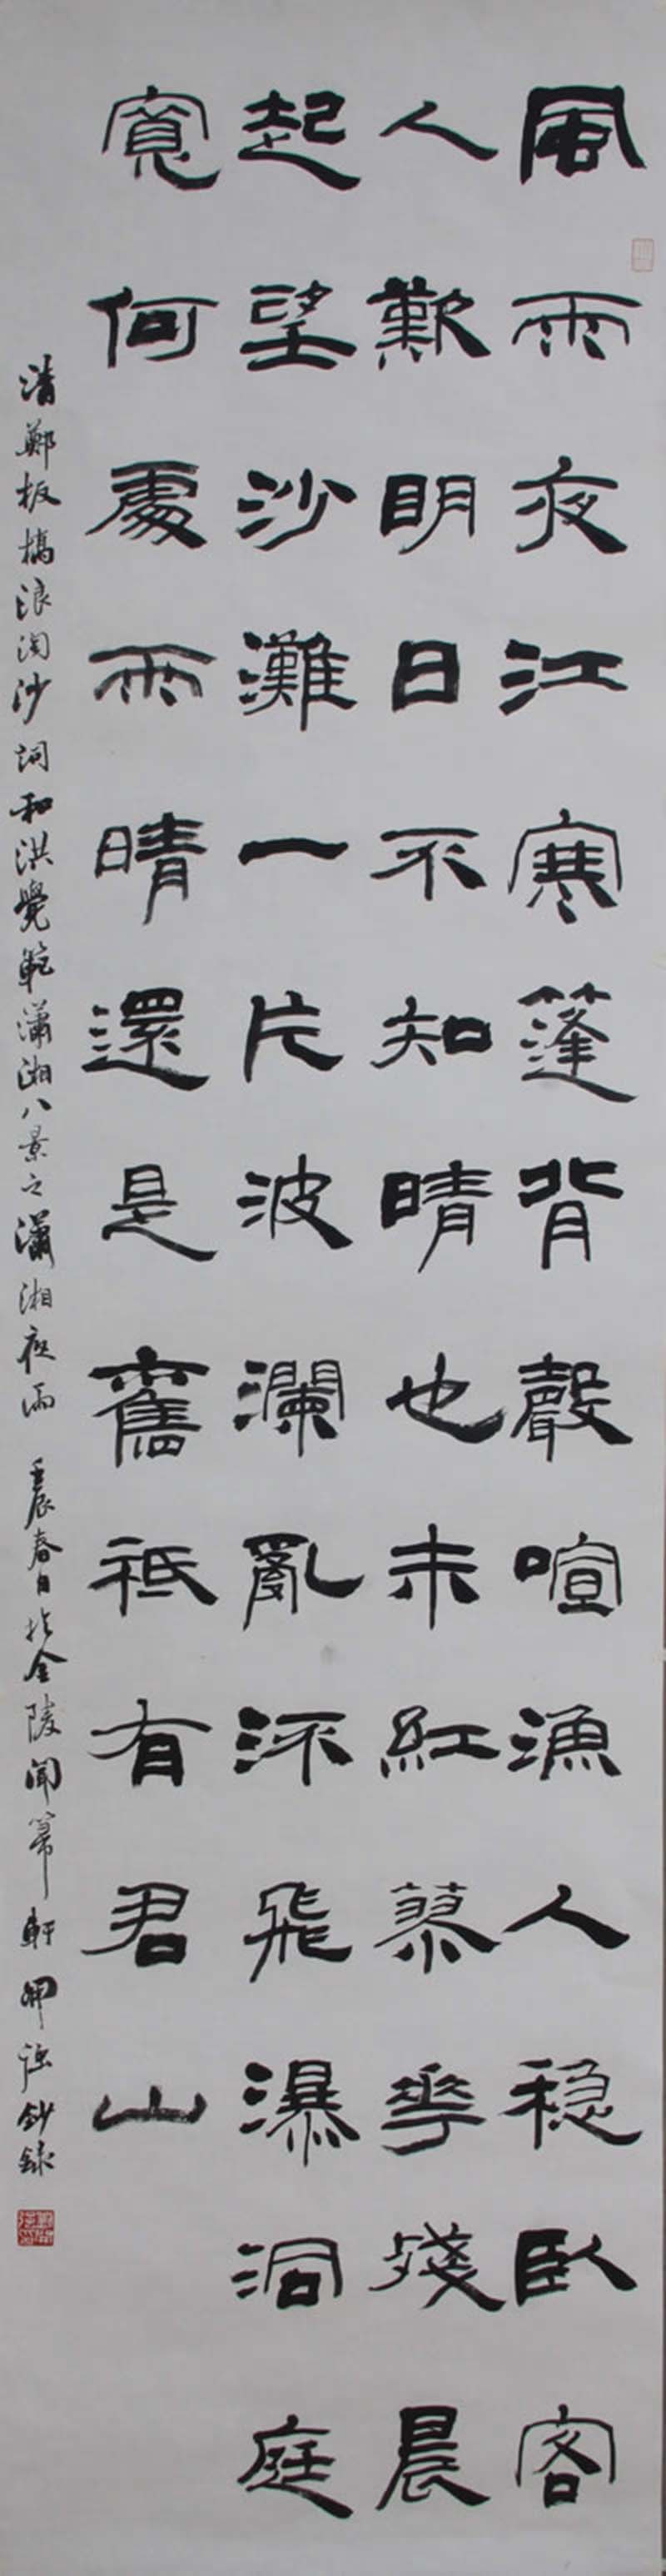 風雨夜江寒蓬背聲喧漁人穩臥客
人歎明日不知晴也未紅蓼花殘晨
起望沙灘一片波瀾亂流飛瀑洞庭
寬何處雨晴還是舊祇有君山
清鄭板橋浪淘沙詞和洪覺範瀟湘八景之瀟湘夜雨 壬辰春日於金陵聞箏軒 鈔錄